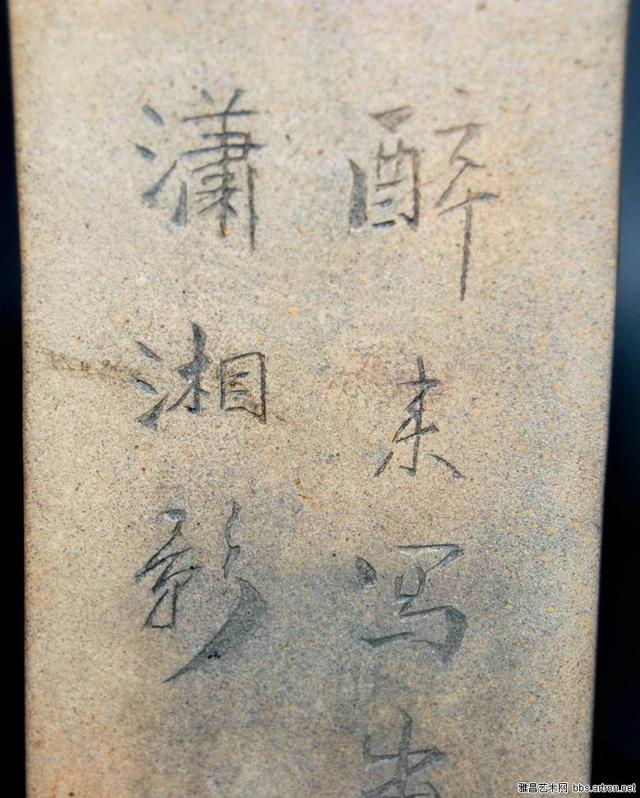 醉来写出
潇湘影
雅昌艺术网 bbs.artron.net